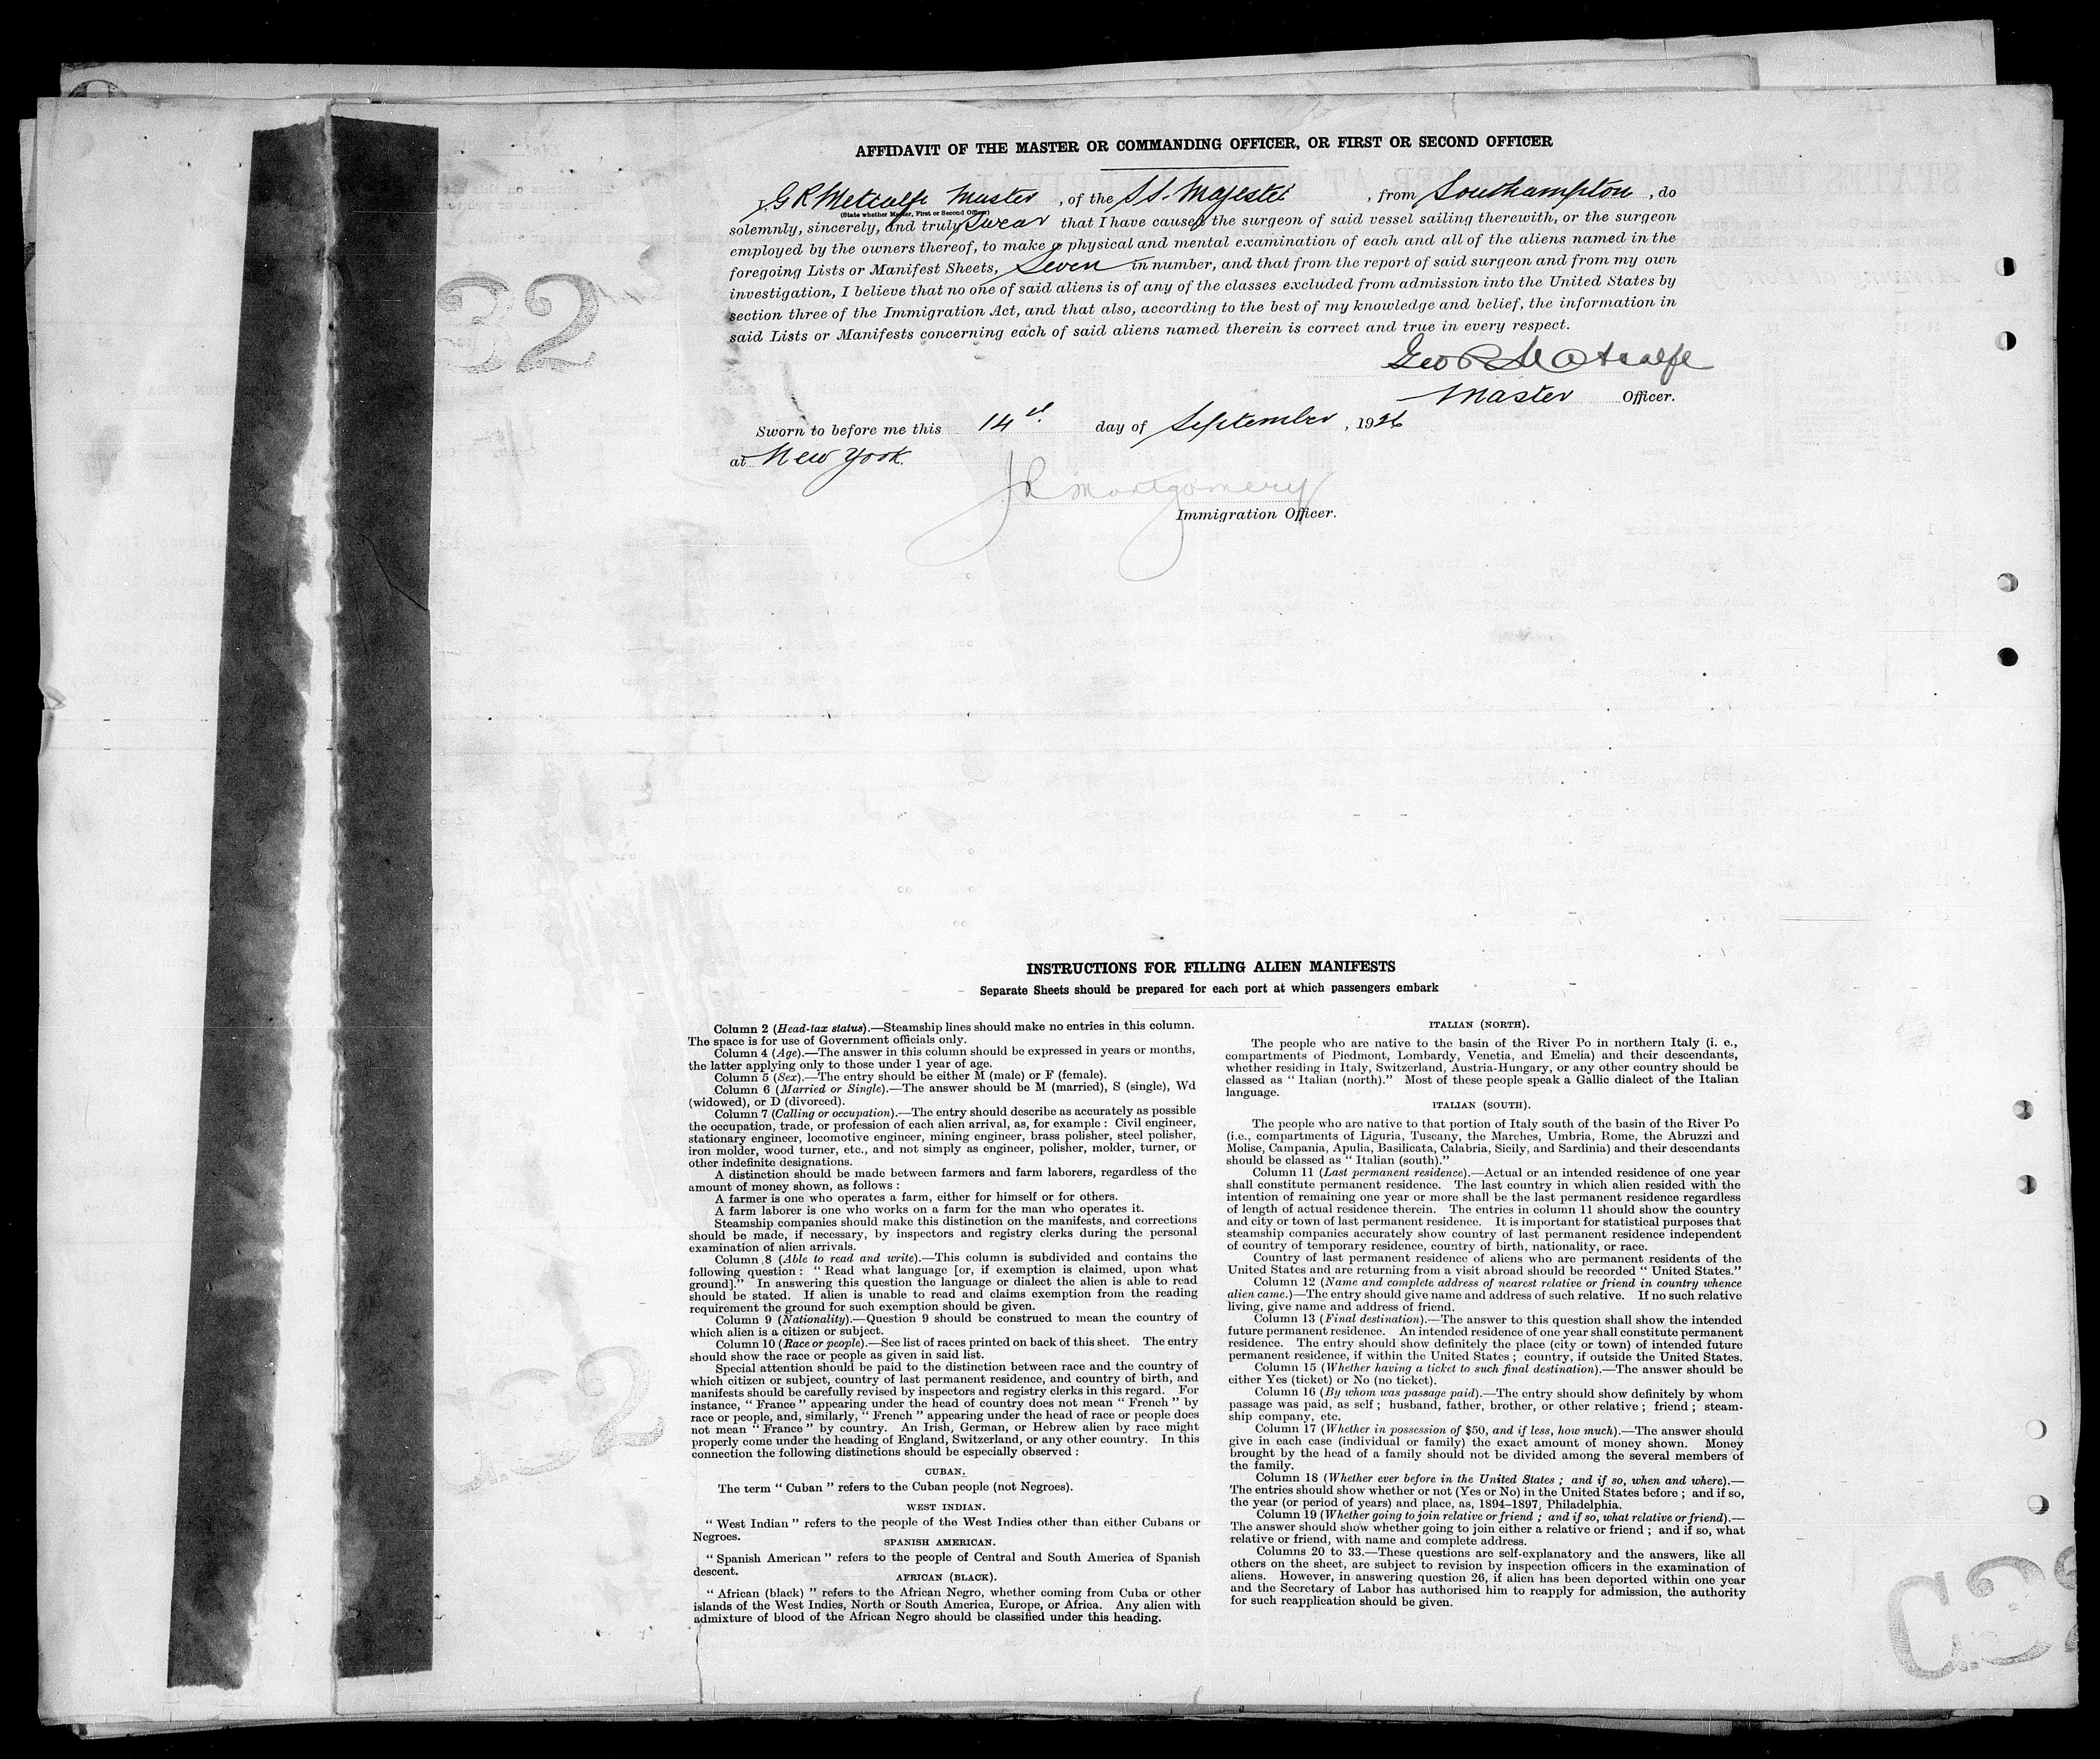 AFFIDAVIT OF THE MASTER OR COMMANDING OFFICER, OR FIRST OR SECOND OFFICER
I, G R Metcalfe Master, of the S.S. Majestic, from Southampton, do
(State whether Master, First or Second Officer)
solemnly, sincerely, and truly Swear that I have caused the surgeon of said vessel sailing therewith, or the surgeon
employed by the owners thereof, to make a physical and mental examination of each and all of the aliens named in the
foregoing Lists or Manifest Sheets, Seven in number, and that from the report of said surgeon and from my own
investigation, I believe that no one of said aliens is of any of the classes excluded from admission into the United States by
section three of the Immigration Act, and that also, according to the best of my knowledge and belief, the information in
said Lists or Manifests concerning each of said aliens named therein is correct and true in every respect.
Geo R Metcalfe
Master Officer.
Sworn to before me this 14 day of September, 1926
at New York.
J R Montgomery
Immigration Officer.
32
INSTRUCTIONS FOR FILLING ALIEN MANIFESTS
Separate Sheets should be prepared for each port at which passengers embark
Column 2 (Head-tax status).—Steamship lines should make no entries in this column.
The space is for use of Government officials only.
Column 4 (Age).—The answer in this column should be expressed in years or months,
the latter applying only to those under 1 year of age.
Column 5 (Sex).—The entry should be either M (male) or F (female).
Column 6 (Married or Single).—The answer should be M (married), S (single), Wd
(widowed), or D (divorced).
Column 7 (Calling or occupation).—The entry should describe as accurately as possible
the occupation, trade, or profession of each alien arrival, as, for example : Civil engineer,
stationary engineer, locomotive engineer, mining engineer, brass polisher, steel polisher,
iron molder, wood turner, etc., and not simply as engineer, polisher, molder, turner, or
other indefinite designations.
A distinction should be made between farmers and farm laborers, regardless of the
amount of money shown, as follows :
A farmer is one who operates a farm, either for himself or for others.
A farm laborer is one who works on a farm for the man who operates it.
Steamship companies should make this distinction on the manifests, and corrections
should be made, if necessary, by inspectors and registry clerks during the personal
examination of alien arrivals.
Column 8 (Able to read and write).—This column is subdivided and contains the
following question : “ Read what language [or, if exemption is claimed, upon what
ground].” In answering this question the language or dialect the alien is able to read
should be stated. If alien is unable to read and claims exemption from the reading
requirement the ground for such exemption should be given.
Column 9 (Nationality).—Question 9 should be construed to mean the country of
which alien is a citizen or subject.
Column 10 (Race or people).—See list of races printed on back of this sheet. The entry
should show the race or people as given in said list.
Special attention should be paid to the distinction between race and the country of
which citizen or subject, country of last permanent residence, and country of birth, and
manifests should be carefully revised by inspectors and registry clerks in this regard. For
instance, “ France ” appearing under the head of country does not mean “ French ” by
race or people, and, similarly, “ French ” appearing under the head of race or people does
not mean “ France ” by country. An Irish, German, or Hebrew alien by race might
properly come under the heading of England, Switzerland, or any other country. In this
connection the following distinctions should be especially observed :
CUBAN.
The term “ Cuban ” refers to the Cuban people (not Negroes).
WEST INDIAN.
“ West Indian ” refers to the people of the West Indies other than either Cubans or
Negroes.
SPANISH AMERICAN.
“ Spanish American ” refers to the people of Central and South America of Spanish
descent.
AFRICAN (BLACK).
“ African (black) ” refers to the African Negro, whether coming from Cuba or other
islands of the West Indies, North or South America, Europe, or Africa. Any alien with
admixture of blood of the African Negro should be classified under this heading.
ITALIAN (NORTH).
The people who are native to the basin of the River Po in northern Italy (i. e.,
compartments of Piedmont, Lombardy, Venetia, and Emelia) and their descendants,
whether residing in Italy, Switzerland, Austria-Hungary, or any other country should be
classed as “ Italian (north).” Most of these people speak a Gallic dialect of the Italian
language.
ITALIAN (SOUTH).
The people who are native to that portion of Italy south of the basin of the River Po
(i.e., compartments of Liguria, Tuscany, the Marches, Umbria, Rome, the Abruzzi and
Molise, Campania, Apulia, Basilicata, Calabria, Sicily, and Sardinia) and their descendants
should be classed as “ Italian (south).”
Column 11 (Last permanent residence).—Actual or an intended residence of one year
shall constitute permanent residence. The last country in which alien resided with the
intention of remaining one year or more shall be the last permanent residence regardless
of length of actual residence therein. The entries in column 11 should show the country
and city or town of last permanent residence. It is important for statistical purposes that
steamship companies accurately show country of last permanent residence independent
of country of temporary residence, country of birth, nationality, or race.
Country of last permanent residence of aliens who are permanent residents of the
United States and are returning from a visit abroad should be recorded “ United States.”
Column 12 (Name and complete address of nearest relative or friend in country whence
alien came.)—The entry should give name and address of such relative. If no such relative
living, give name and address of friend.
Column 13 (Final destination).—The answer to this question shall show the intended
future permanent residence. An intended residence of one year shall constitute permanent
residence. The entry should show definitely the place (city or town) of intended future
permanent residence, if within the United States ; country, if outside the United States.
Column 15 (Whether having a ticket to such final destination).—The answer should be
either Yes (ticket) or No (no ticket).
Column 16 (By whom was passage paid).—The entry should show definitely by whom
passage was paid, as self ; husband, father, brother, or other relative ; friend ; steam-
ship company, etc.
Column 17 (Whether in possession of $50, and if less, how much).—The answer should
give in each case (individual or family) the exact amount of money shown. Money
brought by the head of a family should not be divided among the several members of
the family.
Column 18 (Whether ever before in the United States ; and if so, when and where).—
The entries should show whether or not (Yes or No) in the United States before ; and if so,
the year (or period of years) and place, as, 1894–1897, Philadelphia.
Column 19 (Whether going to join relative or friend ; and if so, what relative or friend).—
The answer should show whether going to join either a relative or friend ; and if so, what
relative or friend, with name and complete address.
Columns 20 to 33.—These questions are self-explanatory and the answers, like all
others on the sheet, are subject to revision by inspection officers in the examination of
aliens. However, in answering question 26, if alien has been deported within one year
and the Secretary of Labor has authorised him to reapply for admission, the authority
for such reapplication should be given.